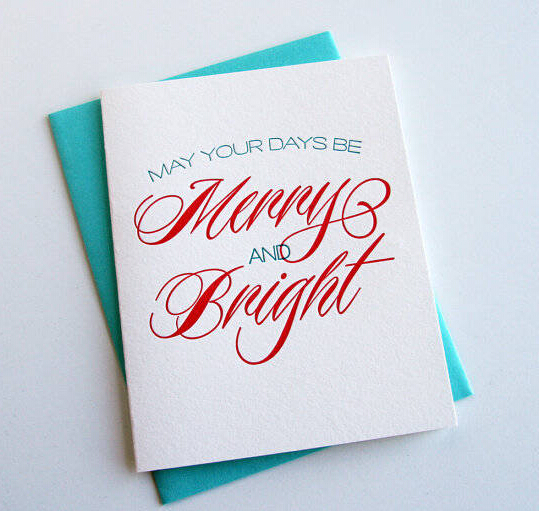 MAY YOUR DAYS BE
Merry
AND
Bright